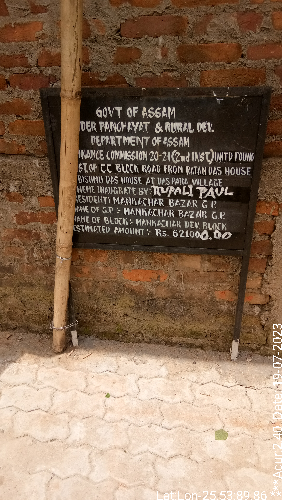 GOVT OF ASSAM
DER PANCHAYAT & RURAL DEV.
DEPARTMENT OF ASSAM
NANCE COMMISSION 20-21 (2nd INST) UNTD FOUND
ST. OF CC BLOCK ROAD FROM RATAN DAS HOUSE
BISHNU DAS HOUSE AT DAS PARA VILLAGE
HEME INAUGRATE BY: RUPALI PAUL
RESIDENT: MANKACHAR BAZAR G.P.
AME OF G.P :- MANKACHAR BAZAR G.P.
AME OF BLOCK:- MANKACHAR DEV. BLOCK
ESTIMATED AMOUNT:- Rs. 621000.00
Lat Lon-25.53,89.86